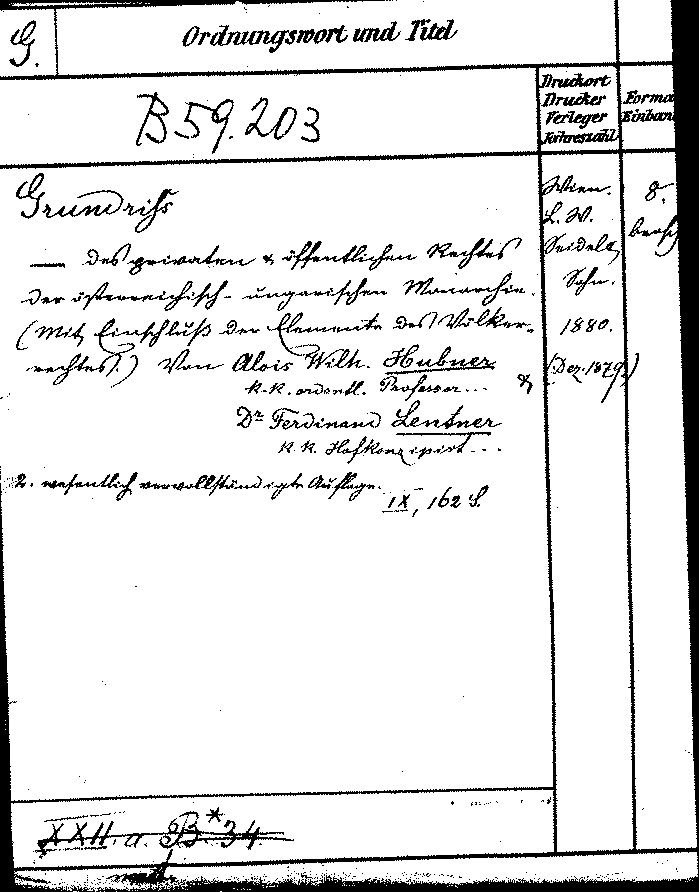 G.
Ordnungswort und Titel
Druckort
Drucker
Verleger
Jahreszahl
Forma
Einban
B 59.203
Grundriss
— des privaten & öffentlichen Rechtes
der österreichisch-ungarischen Monarchie.
(Mit Einschluß der Elemente des Völker-
rechtes.) Von Alois Wilh. Hubner
k.k. ordentl. Professor... &
Dr Ferdinand Lentner
k.k. Hofkonzipist...
2. wesentlich vervollständigte Auflage.
IX, 162 S.
Wien.
L. W.
Seidel &
Sohn.
1880.
(Dez. 1879.)
8.
brosch
XXII. a. B.* 34.